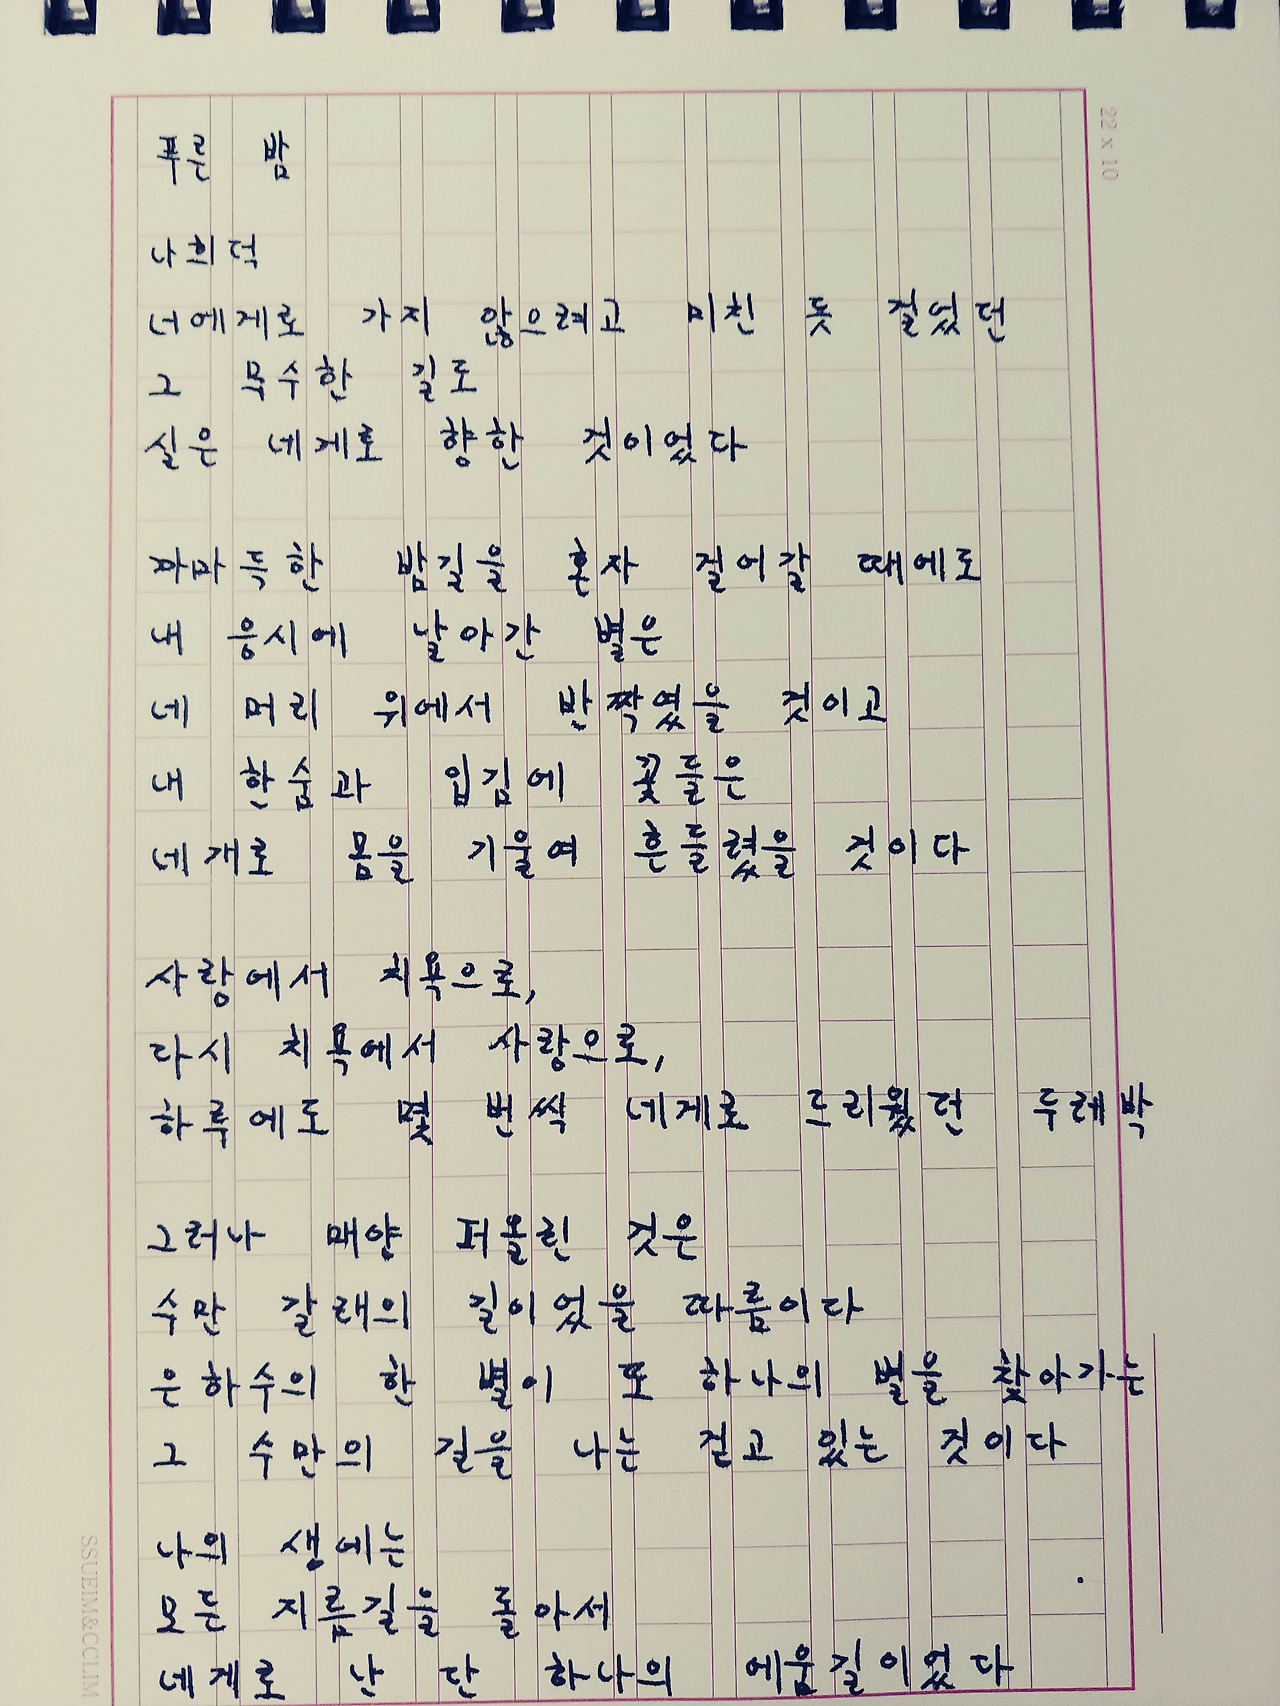 푸른 밤
나희덕
너에게로 가지 않으려고 미친 듯 걸었던
그 무수한 길도
실은 네게로 향한 것이었다
까마득한 밤길을 혼자 걸어갈 때에도
내 응시에 날아간 별은
네 머리 위에서 반짝였을 것이고
내 한숨과 입김에 꽃들은
네게로 몸을 기울여 흔들렸을 것이다
사랑에서 치욕으로,
다시 치욕에서 사랑으로,
하루에도 몇 번씩 네게로 드리웠던 두레박
그러나 매양 퍼올린 것은
수만 갈래의 길이었을 따름이다
은하수의 한 별이 또 하나의 별을 찾아가는
그 수만의 길을 나는 걷고 있는 것이다
나의 생에는
모든 지름길을 돌아서
네게로 난 단 하나의 에움길이었다
22 x 10
SSUEIM&CCLIM